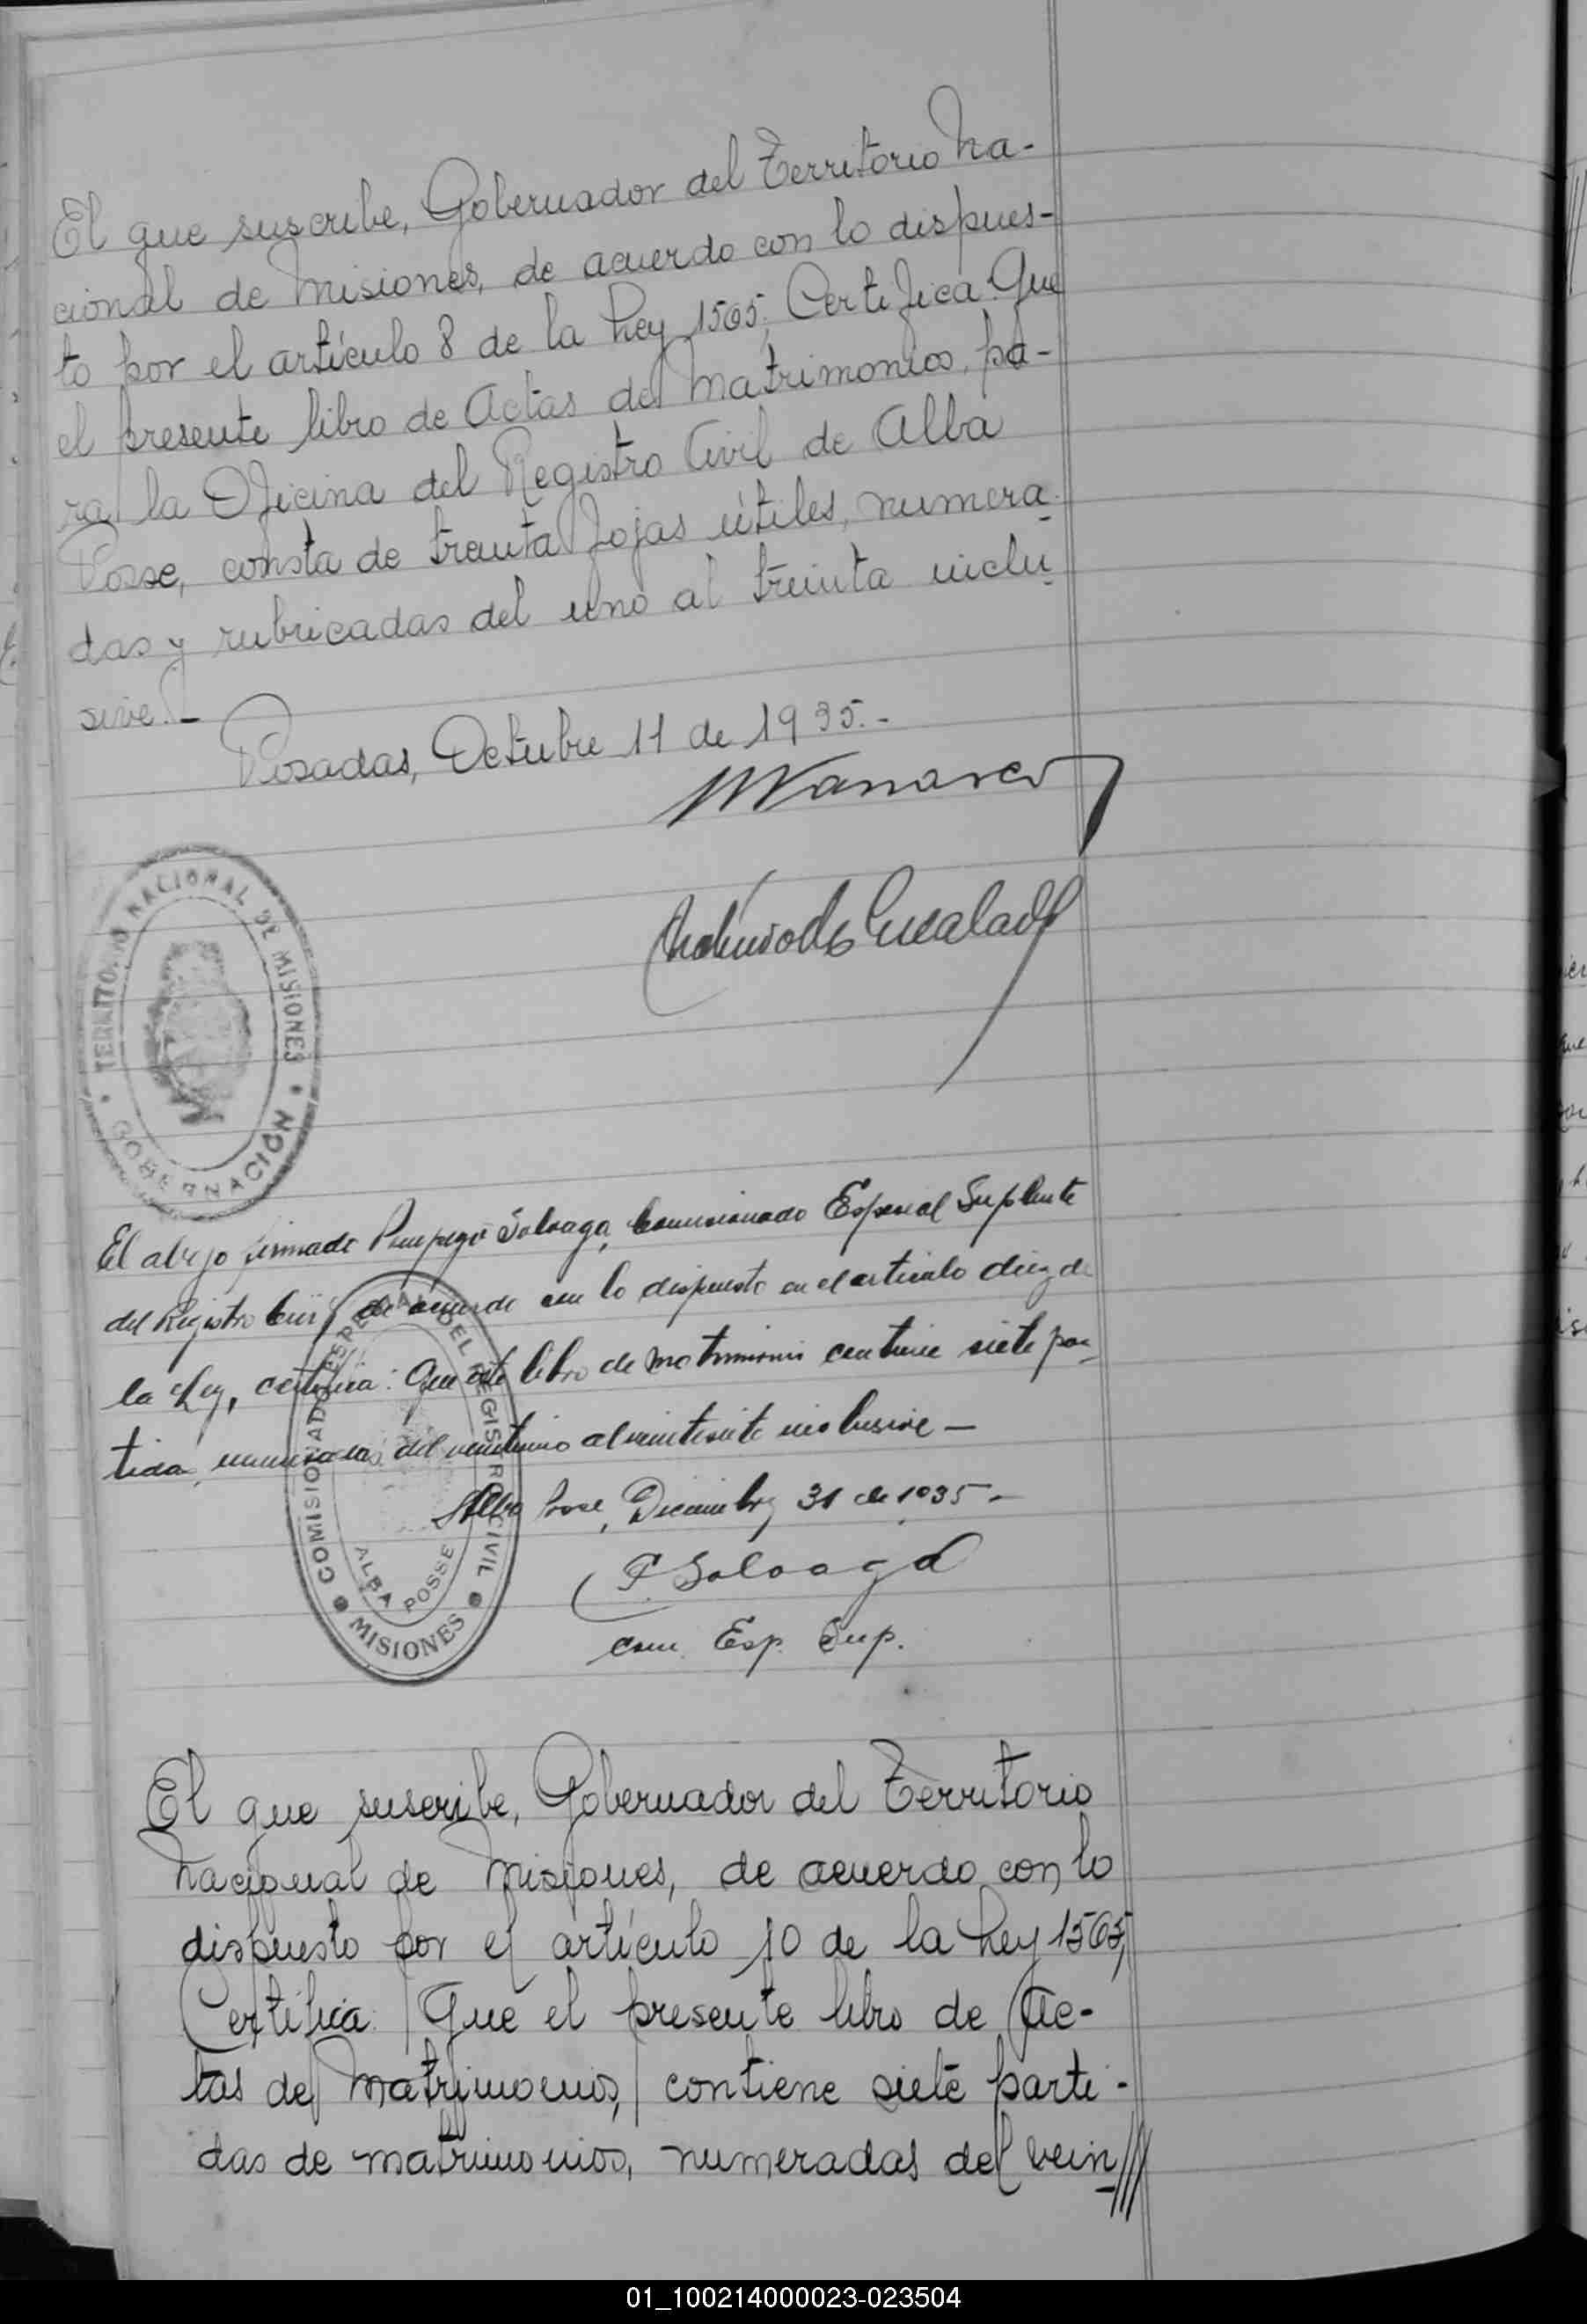 El que suscribe, Gobernador del Territorio Na-
cional de Misiones, de acuerdo con lo dispues-
to por el artículo 8 de la Ley 1565, Certifica: Que
el presente libro de Actas de Matrimonios, pa-
ra la Oficina del Registro Civil de Alba
Posse, consta de treinta fojas útiles, numera-
das y rubricadas del uno al treinta inclu-
sive.-
Posadas, Octubre 11 de 1935.-
TERRITORIO NACIONAL DE MISIONES
GOBERNACIÓN
El abajo firmado Pompeyo Soloaga, Comisionado Especial Suplente
del Registro Civil de acuerdo con lo dispuesto en el artículo diez de
la Ley, certifica: Que este libro de Matrimonios contiene siete par-
tidas, numeradas del veintiuno al veintisiete inclusive -
Alba Posse, Diciembre 31 de 1935 -
P. Soloaga
Com. Esp. Sup.
COMISIONADO ESPECIAL DEL REGISTRO CIVIL
ALBA POSSE
MISIONES
El que suscribe, Gobernador del Territorio
Nacional de Misiones, de acuerdo con lo
dispuesto por el artículo 10 de la Ley 1565,
Certifica: Que el presente libro de Ac-
tas de Matrimonios, contiene siete parti-
das de matrimonios, numeradas del vein///
01_100214000023-023504